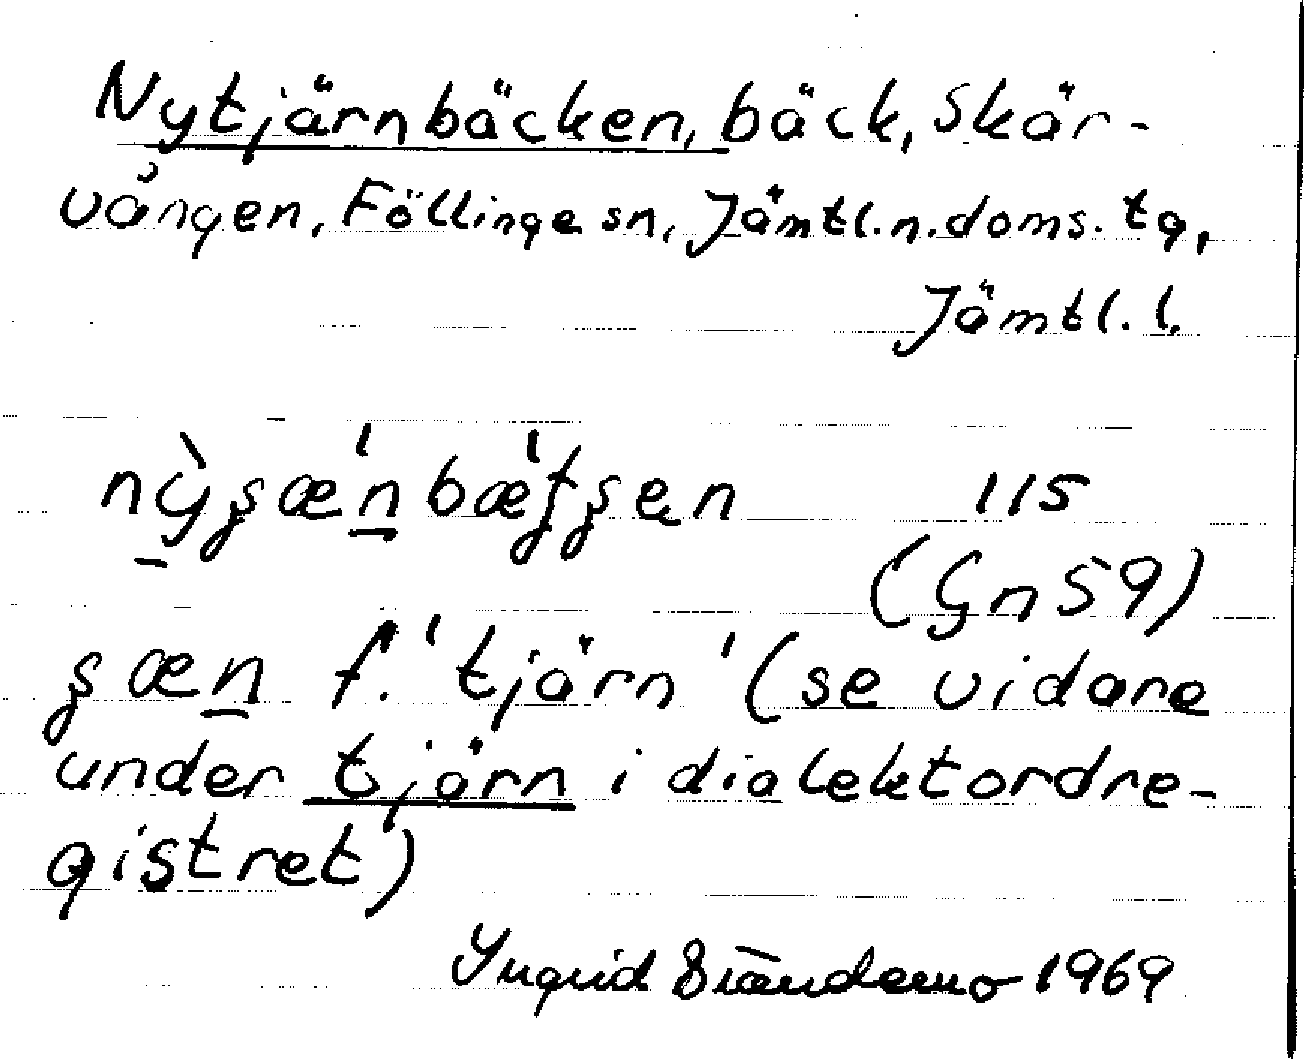 Nytjärnbäcken, bäck, Skär-
vången, Föllinge sn, Jämtl.n.doms.tg,
Jämtl.l.
115
(Gn 59)
f. 'tjärn' (se vidare
under tjärn i dialektordre-
gistret)
Ingrid 1969